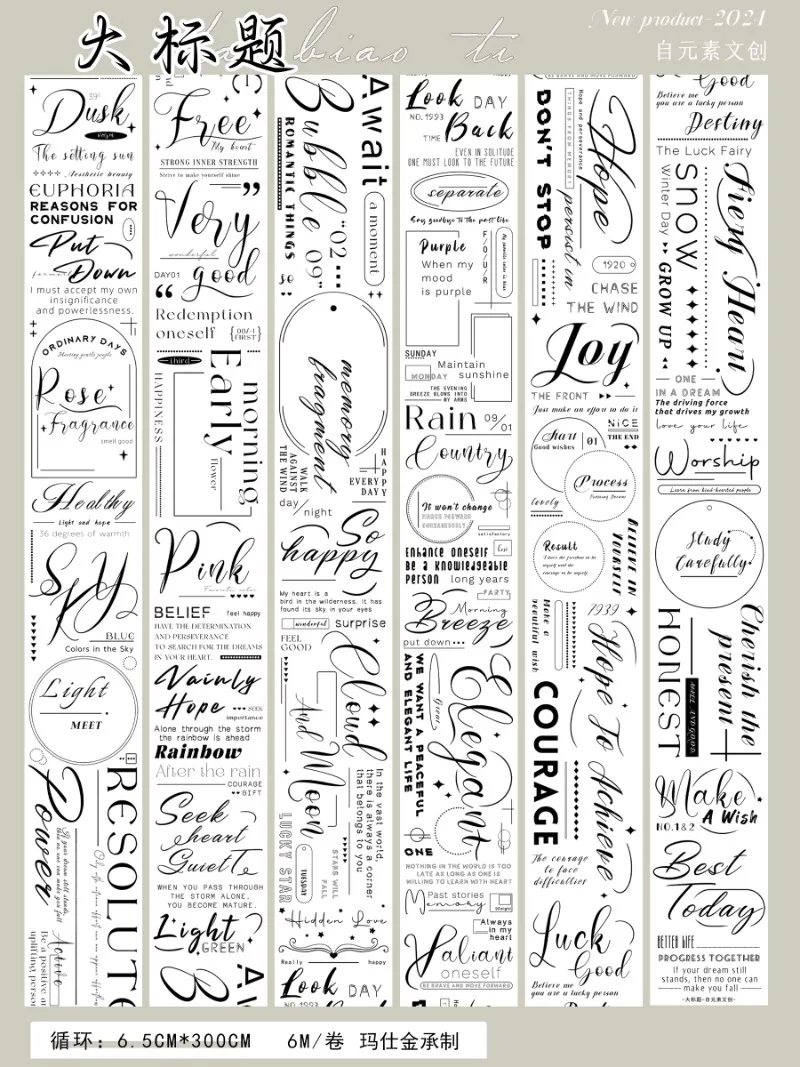 大标题
biao ti
New product-2021
自元素文创
Dusk
The setting sun
Aesthetic beauty
EUPHORIA
REASONS FOR
CONFUSION
Put
Down
I must accept my own
insignificance
and powerlessness.
ORDINARY DAYS
Hurting gentle people
Rose
Fragrance
smell good
Healthy
Light and hope
36 degrees of warmth
SKY
BLUE
Colors in the Sky
Light
MEET
RESOLUTE
Power
Active
Be a positive an
uplifting person
Free
My heart
STRONG INNER STRENGTH
Strive to make yourself shine
Very
wonderful
DAY01
good
Redemption
oneself
{00/-1
FIRST}
third
Early
morning
HAPPINESS
flower
Pink
Favorite color
BELIEF
feel happy
HAVE THE DETERMINATION
AND PERSEVERANCE
TO SEARCH FOR THE DREAMS
IN YOUR HEART.
Vainly
Hope
SEEK
importance
Alone through the storm
the rainbow is ahead
Rainbow
After the rain
COURAGE
GIFT
Seek
heart
Quiet
WHEN YOU PASS THROUGH
THE STORM ALONE,
YOU BECOME MATURE.
Light
GREEN
Await
Bubble
ROMANTIC THINGS
"02
09"
a moment
so
memory
fragment
WALK
AGAINST
THE WIND
HAPPY
EVERY
DAY
day
night
So
happy
My heart is a
bird in the wilderness. It has
found its sky in your eyes
wonderful
surprise
FEEL
GOOD
Cloud
And Moon
In the vast world,
there is always a corner
that belongs to you
STARS WILL
FALL
LUCKY STAR
TUESDAY
Hidden Love
Really
happy
Look DAY
NO.1993
Back
Look DAY
NO.1993
TIME
Back
EVEN IN SOLITUDE
ONE MUST LOOK TO THE FUTURE
separate
Say goodbye to the past life
Purple
When my
mood
is purple
FOUR
SUNDAY
MONDAY
Maintain
sunshine
THE EVENING
BREEZE BLOWS INTO
MY ARMS
Rain
09/01
Country
It won't change
satisfactory
Enhance oneself
Be a knowledgeable
person
long years
PARTY
Morning
Breeze
put down
WE WANT A PEACEFUL
AND ELEGANT LIFE
Great
Elegant
ONE
NOTHING IN THE WORLD IS TOO
LATE AS LONG AS ONE IS
WILLING TO LEARN WITH HEART
Past stories
Memory
Always
in my
heart
Valiant
oneself
BE BRAVE AND MOVE FORWARD
BE BRAVE AND MOVE FORWARD
DON'T STOP
THINGS FROM MEMORY
Hope and perseverance
Hope
persist in
1920
CHASE
THE WIND
Joy
THE FRONT
Just make an effort to do it
Start
01
Good wishes
NICE
THE END
Process
lovely
Result
BELIEVE IN
YOURSELF
Make a
beautiful wish
1939
Hope To Achieve
COURAGE
The courage
to face
difficulties
Luck
Good
Believe me
you are a lucky person
Good
Believe me
you are a lucky person
Destiny
The Luck Fairy
Snow
Winter Day
GROW UP
Fiery Heart
ONE
IN A DREAM
The driving force
that drives my growth
love your life
Worship
Learn from kind-hearted people
Study
Carefully
HONEST
WELL AND GOOD
Cherish the
present
Make
A Wish
NO.1&2
Best
Today
BETTER LIFE
PROGRESS TOGETHER
If your dream still
stands, then no one can
make you fall
-大标题-自元素文创-
循环：6.5CM*300CM 6M/卷 玛仕金承制